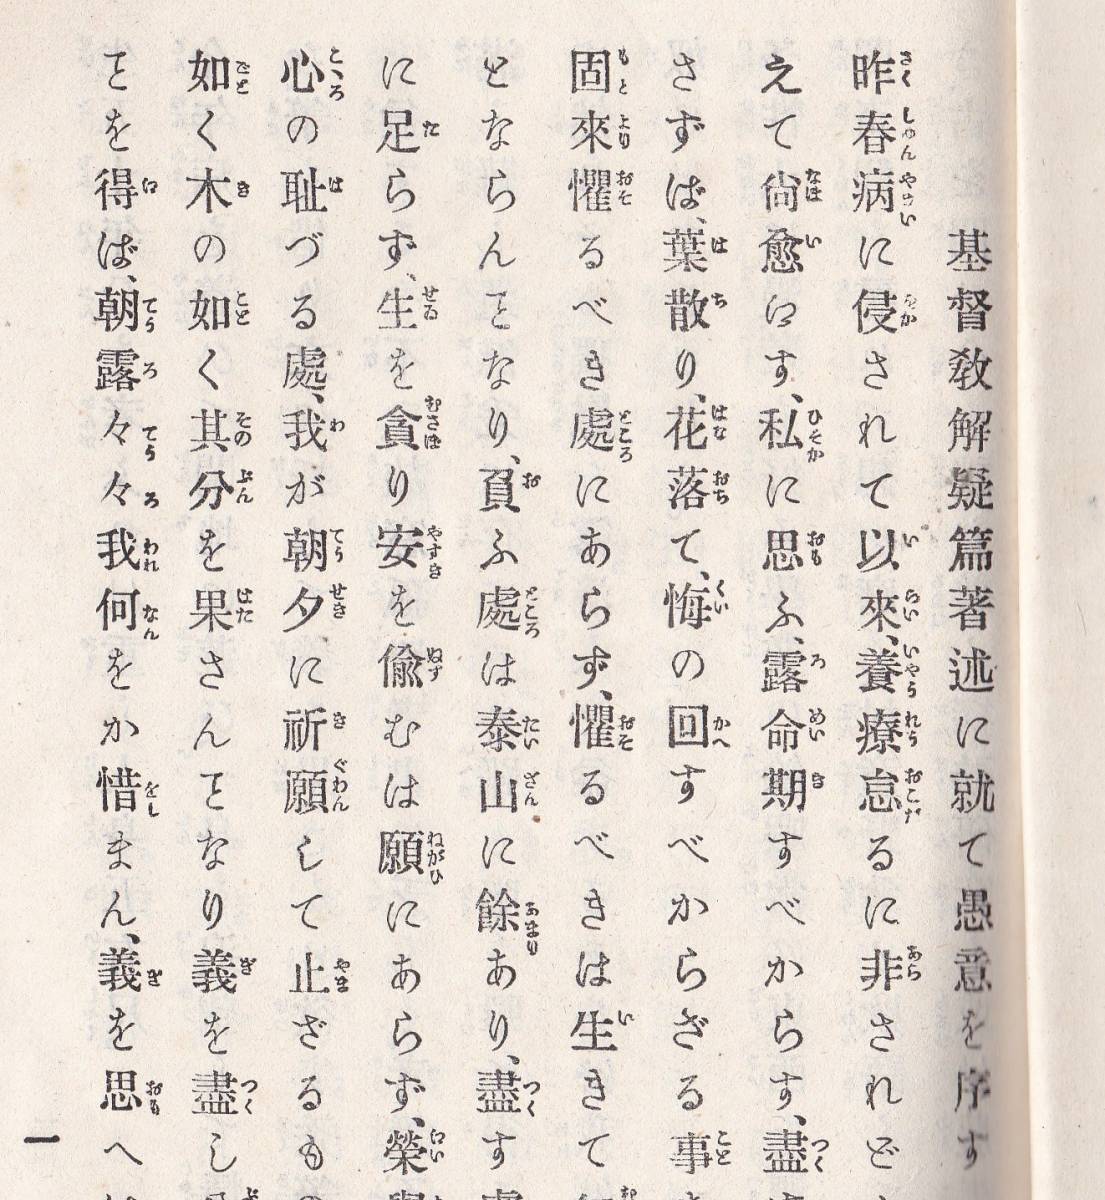 基督敎解疑篇著述に就て愚意を序す
昨春病に侵されて以來、養療怠るに非されど
えて尙愈江す、私に思ふ、露命期すべからす、盡
さずば、葉散り、花落て、悔の回すべからざる事
固來懼るべき處にあらず、懼るべきは生きて
とならんとなり、負ふ處は泰山に餘あり、盡す
に足らず、生を貪り安を偸むは願にあらず、榮
心の耻づる處、我が朝夕に祈願して止ざるも
如く木の如く其分を果さんとなり義を盡し
とを得ば、朝露々々我何をか惜まん、義を思へ
一